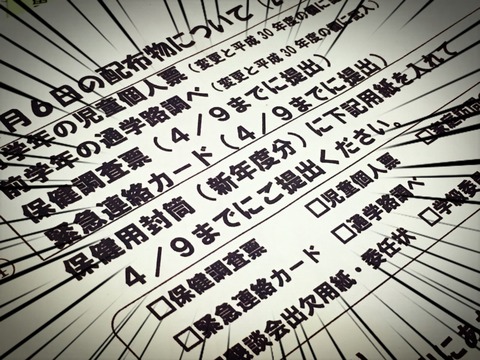 月６日の配布物について
学年の児童個人票（変更と平成30年度の欄に
学年の通学路調べ（変更と平成30年度の欄に記入）
保健調査票（４／９までに提出）
緊急連絡カード（４／９までに提出）
保健用封筒（新年度分）に下記用紙を入れて
４／９までにご提出ください。
□児童個人票
□通学路調べ
□保健調査票
□緊急連絡カード
懇談会出欠用紙・委任状